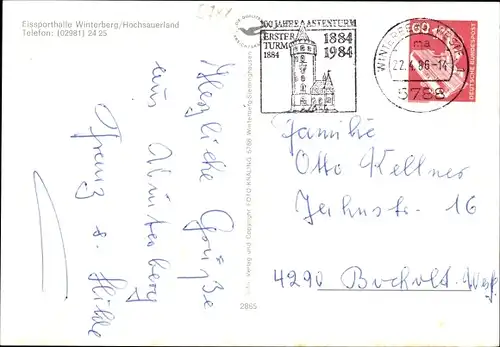 Eissporthalle Winterberg/Hochsauerland
Telefon: (02981) 24 25
Herzliche Grüße
aus Winterberg
Franz u. Hilde
100 JAHRE ASTENTURM
ERSTER
TURM
1884
1884
1984
WINTERBERG
ma
22.4.86-14
5788
60
DEUTSCHE BUNDESPOST
Familie
Otto Kellner
Jahnstr. 16
4290 Bocholt. Westf.
Verlag und Copyright FOTO KNÄLING, 5788 Winterberg-Siedlinghausen
2865